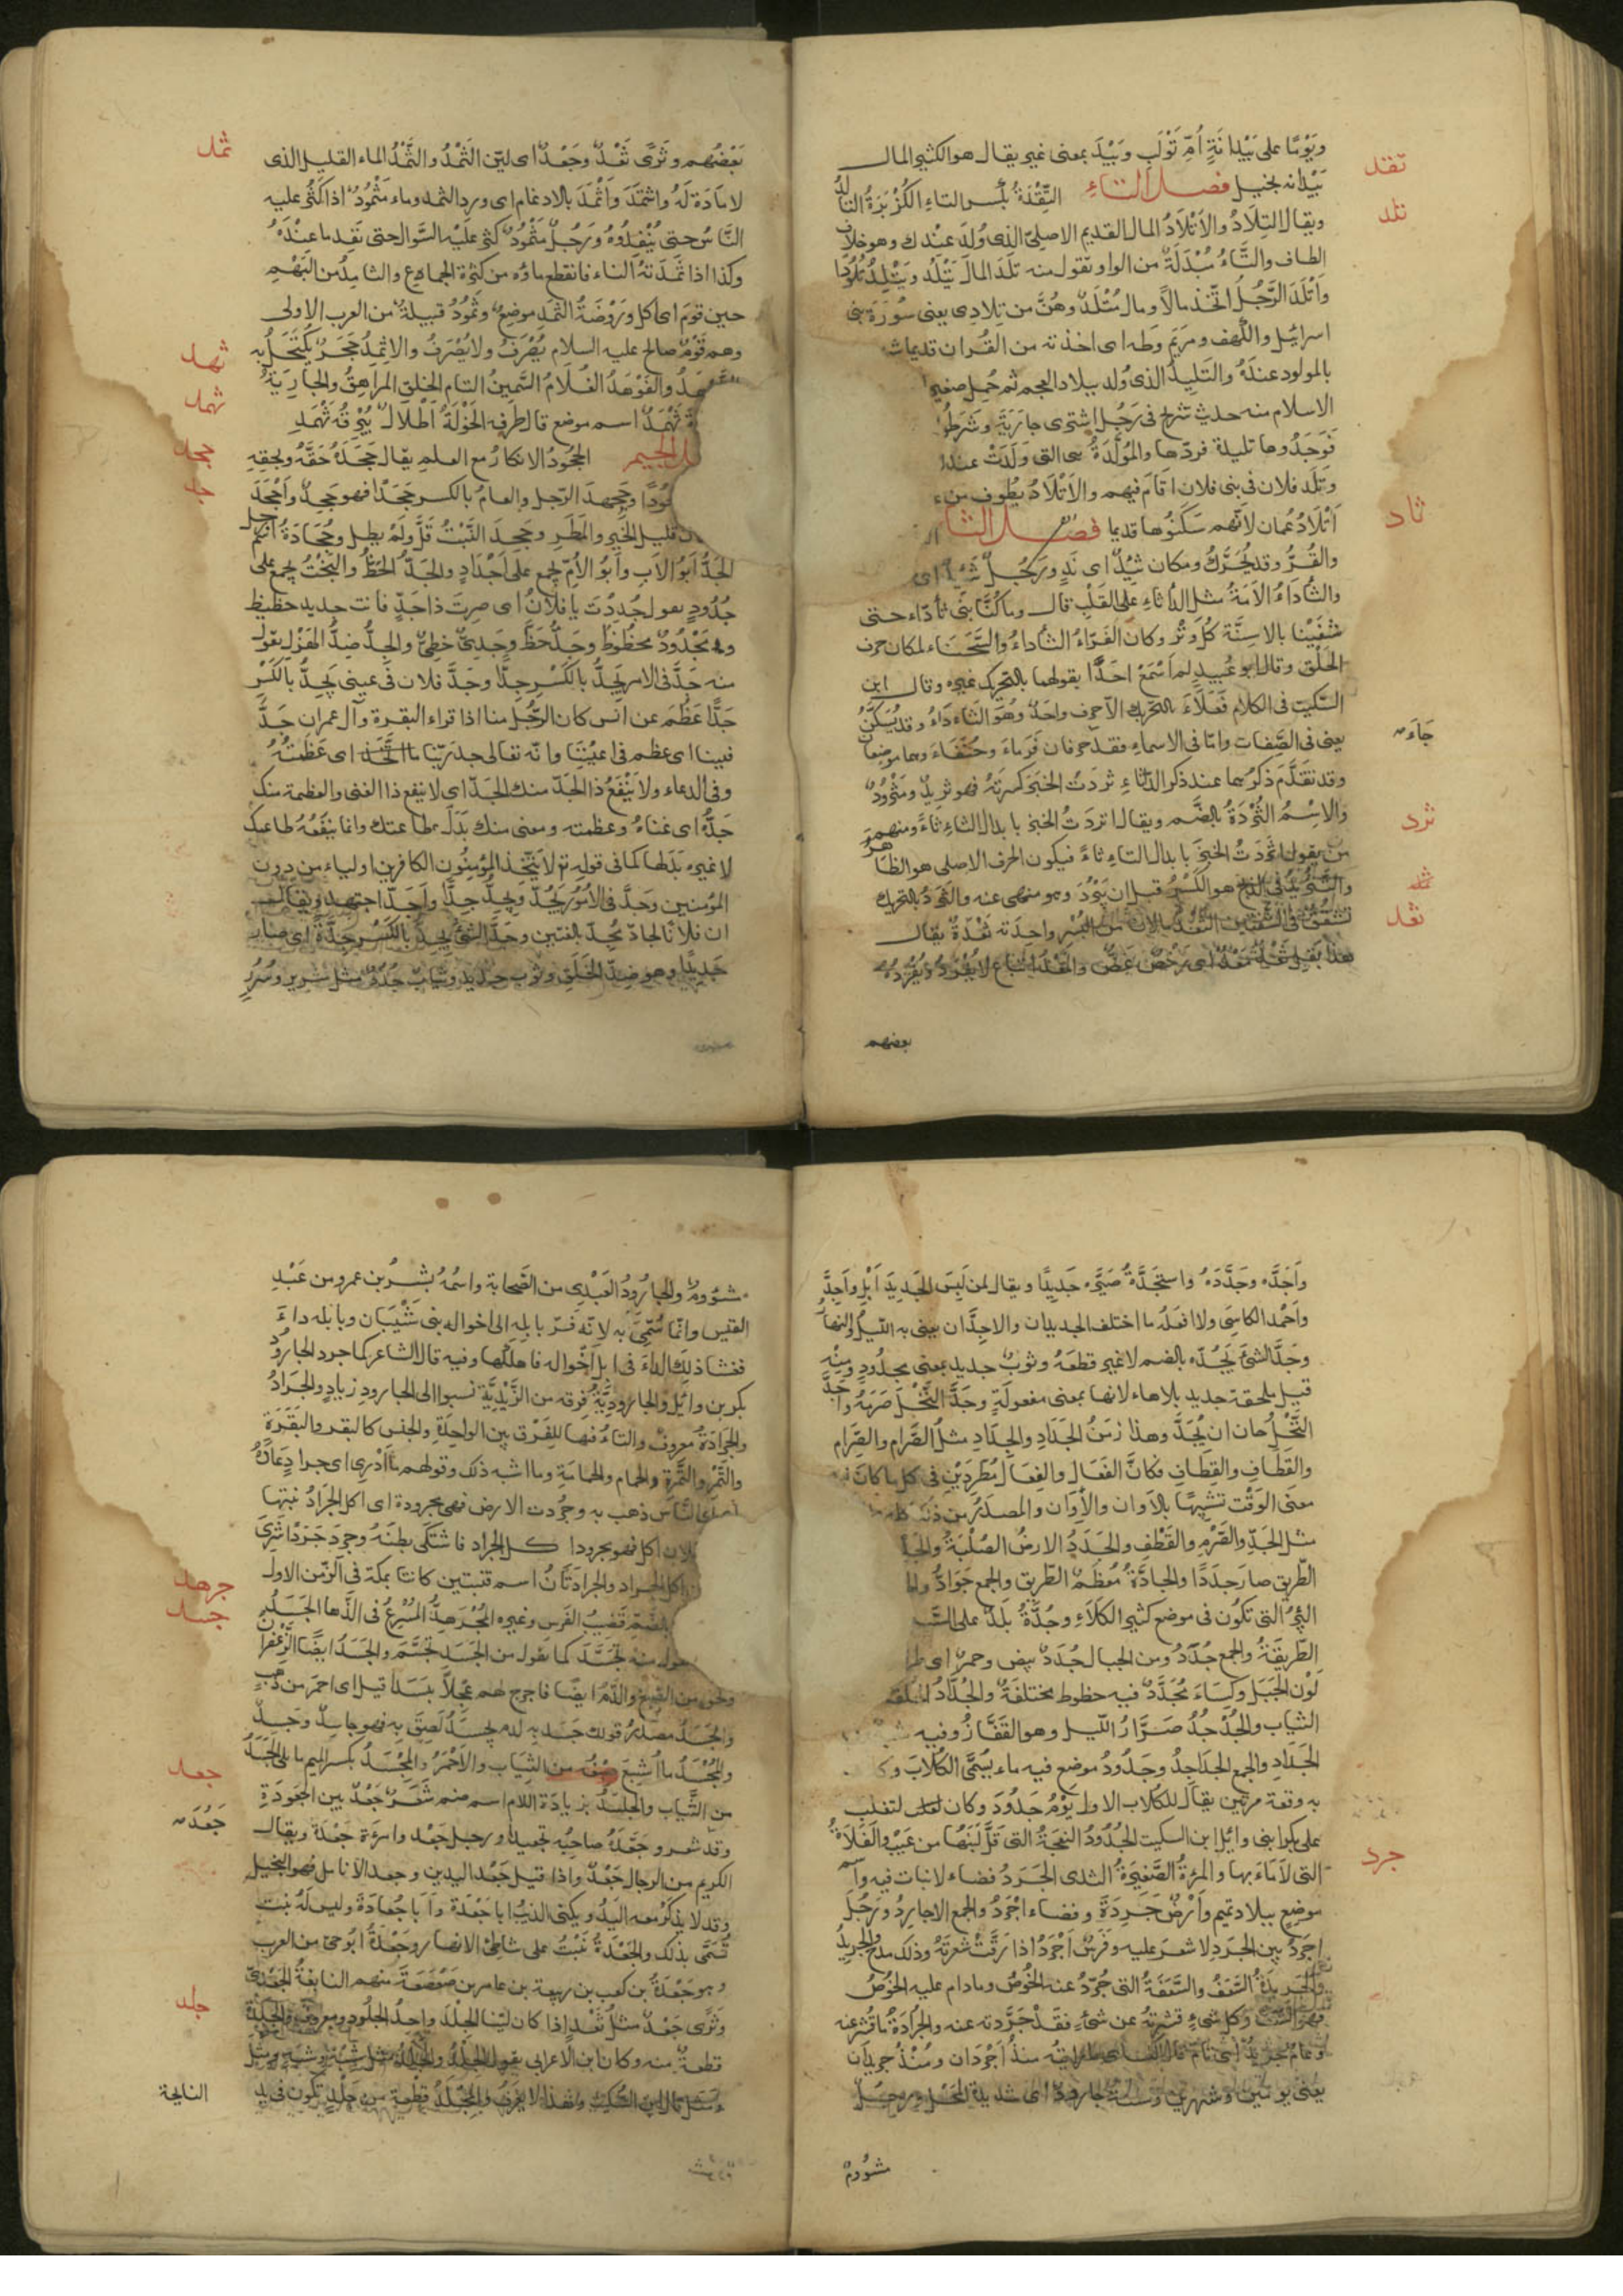 ويَوْمًا على بَيْدانَةٍ أُمِّ تَوْلَبِ وبَيْدَ بمعنى غير يقال هو الكثير المال
تقد
بَيْدانه بخيل فصل التاءِ التِّقْدَةُ بكسر التاءِ الكُزْبَرَةُ التالدُ
تلد
ويقال التِلَادُ والاَتْلَادُ المال القديم الاصلىّ الذى وُلدَ عندك وهو خلاف
الطاف والتَّاءُ مُبْدَلَةٌ من الواو تقول منه تَلَدَ المالُ يَتْلُدُ ويَتْلِدُ تُلُودًا
وأَتْلَدَ الرَّجُلُ اتَّخَذ مالاً ومال مُتْلَدٌ وهُنَّ من تِلادِى يعنى سُورَة بنى
اسرائيل والكهف ومريَم وطه اى اخذته من القُران قديما
بالمولود عندَهُ والتَلِيدُ الذى وُلد ببلاد العجم ثم حُمِل صغيرا
الاسلام منه حديث شريح فى رَجُلٍ اشترى جاريَةً وشَرَطُوا
فَوَجَدُوها تليدة فردّها والمُوَلَّدَةُ هى التى وَلَدَتْ عندك
وتَلَد فلان فى بنى فلان اقامَ فيهم والاَتْلَادُ بُطُوف من
أَتْلَادُ عُمان لانَّهم سَكَنُوها قديما فصل الثا
ثاد
والقُرُّ وقد يُحَرَّكُ ومكان ثَئِدٌ اى نَدٍ ورَجُلٌ ثَئِدٌ اى
والثَّأدَاءُ الاَمَةُ مثل الدَّأثاءِ على القَلْبِ قال وماكُنَّا بَنِى ثأدَاء حتى
شَفَيْنا بالاسِنَّة كلّ وَتْر وكان الفَرّاءُ الثأداءُ والسَّحَنَاء لمكان حرف
الحَلْق وقال ابو عُبيدٍ لم اَسْمَعْ احَدًا يقولهما بالتحريك غيره وقال ابن
السكّيت فى الكلام فَعَلَاءُ بالتحريك الّا حرف واحدٌ وهُوَ الثاءداءُ وقد يُسَكَّنُ
جَاءَ
يعنى فى الصِّفات وامّا فى الاسماءِ فقد حرفان قَرَماءُ وحَنَفَاءُ وهما موضعان
وقد تقدَّمَ ذكرُهما عند ذكر الدَّأثاءِ ثَرَدْتُ الخبزَ كسرتَهُ فهو ثرِيدٌ ومَثْرُودٌ
ثرد
والاسمُ الثُّرْدَةُ بالضَّم ويقال اتردتُ الخبز بابدال الثاءِ تاءً ومنهم
من يقول اثَّرَدْتُ الخبزَ بابدال التاءِ ثاءً فيكون الحرف الاصلى هو الظا هرُ
والتَّثْرِيدُ فى الذبح هو الكَسْرُ قبل ان يَبْرُدَ وهو منهى عنه والثَرَدُ بالتحريك
تَشَقُّقٌ فى الشفتين
ثعد
بعضهم
بَعْضُهم وثَرَّى ثَعْدٌ وجَعْدٌ اى ليّن الثَمْدُ والثَمَدُ الماء القليل الذى
ثمد
لا مَادَة لَهُ واثْتَمَدَ واثْمَدَ بالادغام اى ورد الثمد وماء مَثْمُودٌ اذا كَثُر عليه
النَّاسُ حتى يُنْفِدُوهُ ورَجُلٌ مَثْمُودٌ كثُر علَيْه السَّوالُ حتى نَفِد ما عندَهُ
وكذا اذا ثَمَدَتهُ النساء فانقطع ماؤه من كثرة الجماع والثامِدُ من البَهْمِ
حين قَرَمَ اى اكل ورَوْضَةُ الثَمَدِ موضع وثَمُودُ قبيلةٌ من العرب الاولى
وهم قَوْمُ صالح عليه السلام يُصْرَفُ ولا يُصْرَفُ والاثْمِدُ حَجَرٌ يُكْتَحَلُ به
ثهد
والفَوْهَدُ الغُلَامُ السَّمِينُ التام الخلق المراهِقُ والجارِيَةُ
ثهمد
ثَهْمَدٌ اسم موضع قال طرفه لِخَوْلَةَ أَطْلَالٌ بِبُرْقَة ثَهْمَدِ
جحد
الجيم الجُحُودُ الانكارُ مع العلم يقال جَحَدَهُ حَقَّهُ وبحقه
وجَحِدَ الرّجل والعامُ بالكسر جَحَدًا فهو جَحِدٌ وأَجْحَدَ
جد
قليل الخَيْرِ والمَطَرِ وجَحِدَ النَّبْتُ قَلَّ ولَمْ يطل وجُحَادَةُ اسم رجل
الجَدُّ أَبُو الاَبِ وأَبُو الأُمّ يجمع على أَجْدادٍ والجَدُّ الحَظُّ والبَخْتُ يجمع على
جُدُودٍ تقول جُدِدْتَ يا فلانُ اى صِرتَ ذا جَدٍّ فانت جديد حظيظ
ومَجْدُودٌ محظوظٌ وجَدٌّ حَظٌّ وجَدِىٌّ حَظِىٌّ والجِدُّ ضِدُّ الهَزْلِ تقول
منه جَدَّ فى الامر يَجِدُّ بالكَسْرِ جِدًّا وجَدَّ فلان فى عينى يَجِدُّ بالكَسْرِ
جَدًّا عَظُمَ عن انس كان الرَّجُلُ منا اذا قراء البقرة وآل عمران جَدَّ
فينا اى عظم فى اعيُنِنَا وانّه تعالى جد رَبّنا ما اتَّخَذَ اى عَظَمَتُهُ
وفى الدعاء ولا يَنْفَعُ ذا الجَدّ منك الجَدّ اى لا ينفع ذا الغنى والعظمة منك
جَدُّهُ اى غناهُ وعظمته ومعنى منك بَدَلَ طاعتك وانما ينفَعُهُ طاعتك
لا غيرُه بَدَلها كما فى قوله تع لا يَتّخذ المؤمِنُون الكافرين اولياء من دون
المؤمنين وجَدَّ فى الاُمُور يَجُدُّ ويجِدُّ جِدًّا وأَجَدّ اجتهد ويقال
ان فلانًا لجادٌّ مُجِدّ بلغتين وجَدَّ الشئ يَجِدُّ بالكَسْرِ جِدَّةً اى صار
جَدِيدًا وهو ضدّ الخَلَقِ وثوب جديد وثياب جُدُدٌ مثل سَرِير وسُرُرٍ
وأَجَدَّه وجَدَّدَهُ واستَجَدَّهُ صَيَّره جَدِيدًا ويقال لمن لبسَ الجَديدَ أَبْلِ وأَجِدَّ
وأَحْمَد الكاسِىَ ولا افعلُه ما اختلف الجديدان والاجدَّان يعنى به الليلُ والنهارُ
وجَدَّ الشئَ يَجُدُّه بالضم لا غير قطعَهُ وثوبٌ جديد بمعنى مجدُودٍ ومنْه
قيل ملحفة جديد بلا هاءٍ لانها بمعنى مفعولَةٍ وجَدَّ النَّخْلَ صَرَمَهُ وأجَدَّ
النَّخْلُ حان ان يُجَدَّ وهذا زمَنُ الجَدَادِ والجِدَادِ مثلُ الصَّرَام والصِّرَام
والقَطَافِ والقِطَافِ فكانَّ الفَعَال والفِعَالَ مُطَّرِدَيْنِ فى كل ما كان فيه
معنَى الوَقْت تشبيهًا بالاَوان والاِوَان والمصدَرُ من ذلك كله
مثل الجَدِّ والصَّرْمِ والقَطْفِ والجَدَدُ الارضُ الصُلْبَةُ
الطَّريق صارَ جدَدًا والجادَّةُ مُعْظَمُ الطَّريق والجمع جَوَادُّ
البِئْرُ التى تكُون فى موضع كثير الكَلَاءِ وجُدَّةُ بلدٌ على
الطَّريقَةُ والجمع جُدَدٌ ومن الجبال جُدَدٌ بيض وحمرٌ اى
لَوْن الجَبَل وكِسَاءٌ مُجَدَّدٌ فيه خطوط مختلفَةٌ والجُدَّادُ
الثياب والجُدْجُدُ صَرَّارُ الليل وهو القَفَّازُ وفيه
الجَدَّادِ والجمع الجَدَاجِدُ وجَدُودُ موضع فيه ماء يُسَمَّى الكُلابَ
به وقعة مرتين يقال للكُلاب الاول يَوْمُ جَدُودَ وكان لتغلب
على بكر ابنى وائل ابن السكيت الجَدُودُ النعجَةُ التى قَلَّ لَبَنُها من عَيْبٍ والفَلَاةُ
جرد
التى لا مَاءَ بها والمرءةُ الصَّغيرَةُ الثدى الجَرَدُ فضاء لا نبات فيه واسم
موضعٍ ببلاد تميم وأَرْضٌ جَرِدَةٌ وفضاء اجْرَدُ والجمع الاجارِدُ ورَجُلٌ
اجرَدُ بين الجَرَدِ لا شعرَ عليه وفَرَسٌ أَجْرَدُ اذا رَقَّتْ شَعرَتُهُ وذلك مدح والجريدُ
والجَرِيدَةُ السَّعَفُ والسَّعَفَةُ التى جُرِّدَ عنه الخُوصُ وما دام عليه الخُوصُ
فهو السَّعَفُ وكل شىءٍ قشرتَهُ عن شىءٍ فقد جَرَّدته عنه والجُرَادَةُ ما قُشِر عنه
وعامٌ جريدٌ اى تام منذُ أَجْرَدَان ومُنْذُ جريدَانِ
يعنى يومَين وشهرين وسَنَةٌ جارودٌ اى شديدة المَحْل ورجُلٌ
مشؤومٌ
مشؤومٌ والجارُودُ العَبْدِى من الصَّحابة واسمُهُ بِشْرُ بن عمرو من عَبْدِ
القيس وانّما سُمِّىَ به لانّه فَرَّ بابله الى اخواله بنى شَيْبَان وبابله داءٌ
ففشا ذلِكَ الداءُ فى ابل أَخْواله فاهلكها وفيه قال الشاعر كما جرد الجارُودُ
بكر بن وائل والجارودِيَّةُ فِرقه من الزَّيْدِيَّة نسبوا الى الجارود زيادٍ والجَرَادُ
والجَرَادَةُ معروفٌ والتاءُ فيها للفرق بين الواحِدَةِ والجنس كالبقر والبَقَرَة
والتَّمْر والتَّمْرَة والحمام والحمامَة وما اشبه ذلك وقولهم ما أَدْرِى اى جرادٍ عَارَهُ
اى النَّاسِ ذهب به وجُردت الارض فهى مجرودة اى اكل الجَرَادُ نبتها
اكل فهو مجرودا كل الجراد فاشتكى بطنَهُ وجردَ جَرَدًا شَرِىَ
اكل الجراد والجرادَتَانُ اسم قنيتين كانتا بمكة فى الزَّمن الاول
جرهد
قَضِيبُ الفَرَس وغيره المُجْرَهِدُّ المُسْرعُ فى الذَّهاب الجَسَدُ
جسد
منه تَجَسَّدَ كما تقول من الجسْم تجَسَّمَ والجَسَدُ ايضًا الزَّعفرا
والدَّمُ ايضًا فاخرج لهم عِجْلاً جَسَدًا قيل اى احمرَ من ذهبٍ
والجَسَدُ مصدرُ قولك جَسِد به الدم يجسَدُ لَصِقَ به فهو جاسدٌ وجَسِدٌ
والمُجْسَدُ ما أُشبِعَ صِبْغُه من الثِيَاب والاَحْمَرُ والمِجْسَدُ بكسر الميم ما يلى الجَسَدَ
جعد
من الثِّيابِ والجَلْسَدُ بزيادَة اللام اسم صنم شَعَرٌ جَعْدٌ بين الجُعُودَةِ
جَعُدَ
وقد شعر وجَعَّدَهُ صاحبُه تجعيدًا ورجل جعد وامرءَة جَعْدَة ويقال
الكريم من الرجال جَعْدٌ واذا قيل جَعْد اليدين وجعد الانامل فهو البخيل
وقد لا يذكرُ معه اليَدُ ويكنى الذئبُ ابا جَعْدَة وأَبَا جُعَادَةَ وليس لَهُ بنت
تُسَمَّى بذلك والجَعْدَةُ نَبْتٌ على شاطِئ الانهار وجَعْدَةُ ابُو حَىّ من العرب
وهو جَعْدَةُ بن كعب بن ربيعة بن عامر بن صَعْصَعَةَ منهم النابغةُ الجَعْدِىّ
جلد
وثَرًى جَعْدٌ مثلُ ثَعْدٍ اذا كان ليّنا الجِلْدُ واحِدُ الجلُودِ ومعروف والجِلْدَةُ
قطعةٌ منه وكان ابن الاعرابى يقول الجِلْدُ والجَلَدُ مثل شِبْه وشَبَه ومِثْل
ومَثَل قال ابن السّكيت وهذا لا يُعْرَفُ والمِجْلَدُ قطعة من جِلْدٍ تكون فى يد
النايحة